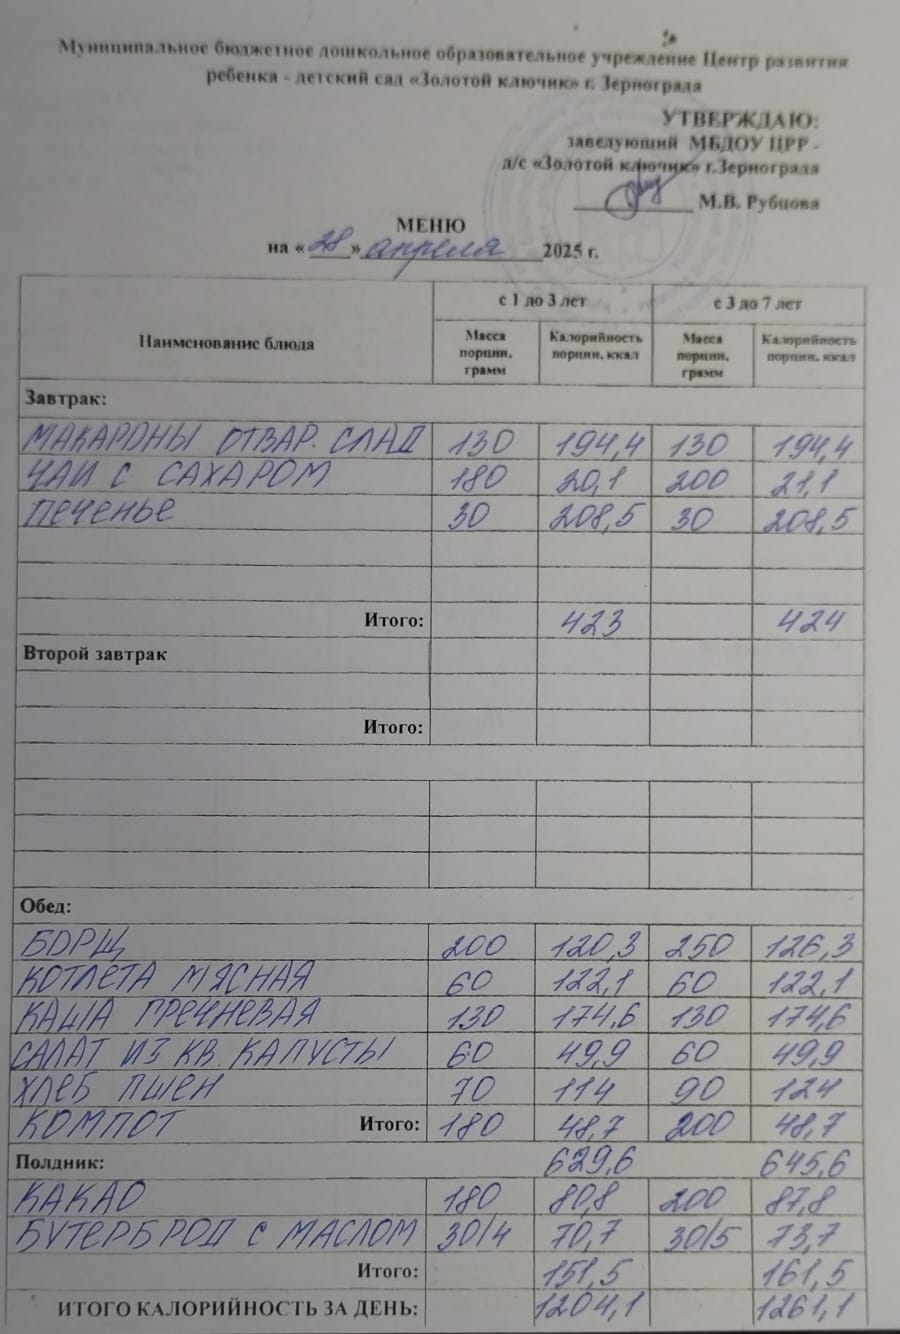 Муниципальное бюджетное дошкольное образовательное учреждение Центр развития
ребенка - детский сад «Золотой ключик» г. Зернограда
УТВЕРЖДАЮ:
заведующий МБДОУ ЦРР -
д/с «Золотой ключик» г.Зернограда
М.В. Рубцова
МЕНЮ
на «28» апреля 2025 г.
Наименование блюда с 1 до 3 лет с 3 до 7 лет
Масса порции, грамм Калорийность порции, ккал Масса порции, грамм Калорийность порции, ккал
Завтрак:
МАКАРОНЫ ОТВАР. СЛАД 130 194,4 130 194,4
ЧАЙ С САХАРОМ 180 20,1 200 21,1
ПЕЧЕНЬЕ 30 208,5 30 208,5
Итого: 423 424
Второй завтрак
Итого:
Обед:
БОРЩ 200 120,3 250 126,3
КОТЛЕТА МЯСНАЯ 60 122,1 60 122,1
КАША ГРЕЧНЕВАЯ 130 174,6 130 174,6
САЛАТ ИЗ КВ. КАПУСТЫ 60 49,9 60 49,9
ХЛЕБ ПШЕН 70 114 90 124
КОМПОТ Итого: 180 48,7 200 48,7
Полдник: 629,6 645,6
КАКАО 180 80,8 200 87,8
БУТЕРБРОД С МАСЛОМ 30/4 70,7 30/5 73,7
Итого: 151,5 161,5
ИТОГО КАЛОРИЙНОСТЬ ЗА ДЕНЬ: 1204,1 1261,1